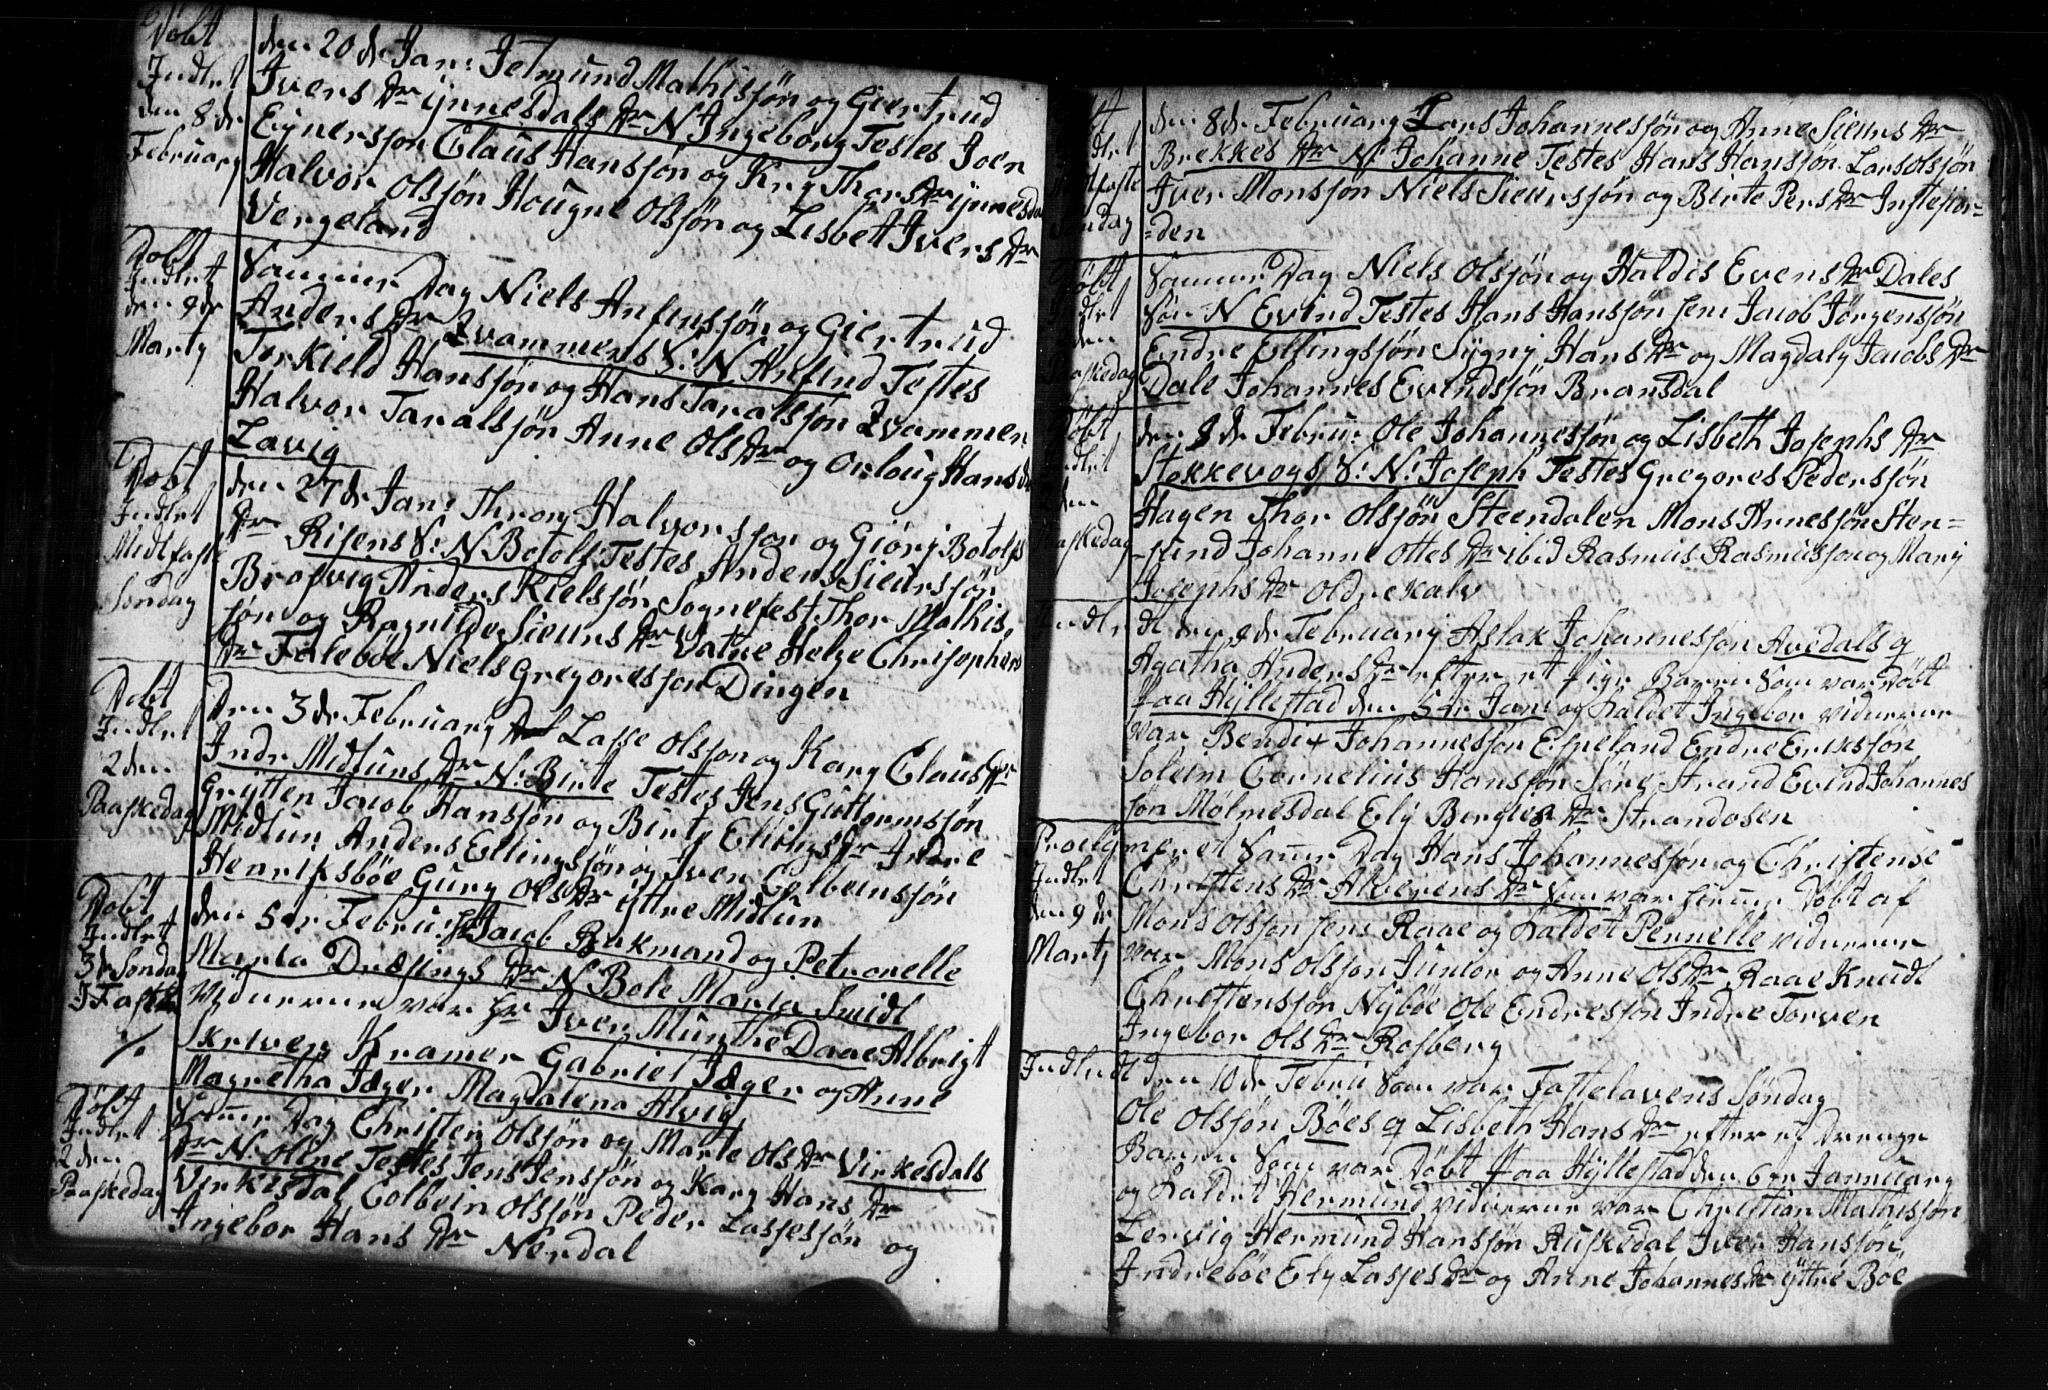 Døbt
Indlet
den 8de
February
den 20de Jan: Jetmund Mathissøn og Giertrud
Ivers Dr Ynnesdals Dr N Ingeborg Testes Joen
Eynersson Claus Hanssøn og Kry Thors Dr Ynnesdal
Halvor Olssøn Hougne Olssøn og Lisbet Ivers Dr
Vergeland
Døbt
Indlet
den 9de
Marty
Samme Dag Niels Anfinssøn og Giertrud
Anders Dr Qvammens S: N Anfind Testes
Torkield Hanssøn og Hans Taralssøn Qvammen
Halvor Taralssøn Anne Ols Dr og Orloug Hans dr
Lavig
Døbt
Indlet
Midtfaste
Søndag
den 27de Jan: Throng Halvorsson og Giørj Botolfs
Dr Risens S: N Botolf Testes Anders Sieurssøn
Brosvig Anders Kielssøn Sognefest Thor Mathis
søn og Ragnilde Sieurs Dr Vatne Helge Christophers
Dr Faleboe Niels Gregoresson Dingen
Døbt
Indlet
2den
Paaskedag
Den 3de February Lasse Olsson og Kary Claus Dr
Indr Midtuns Dr N: Birte Testes Jens Guttormssøn
Grytten Jacob Hanssøn og Birte Ellings Dr Indre
Midtun Anders Ellingssøn og Iver Colbeinssøn
Henriksbøe Gury Ols Dr Yttre Midtun
Døbt
Indlet
3de Søndag
I Faste
%
den 5de Febru: Hr Jacob Bekmand og Petronelle
Maria Dræsings Dr N Bole Maria Smidt
Viduerne var Hr Iver Munthe Daae Albrigt
Skriver Kramer Gabriel Jæger og Anne
Magretha Jæger Magdalena Alvig
Døbt
Indlet
2den
Paaskedag
Samme Dag Christen Olssøn og Marte Ols Dr Virkesdals
Dr N: Oline Testes Jens Jenssøn og Kary Hans Dr
Virkesdal Colbein Olssøn Peder Lassessøn og
Ingebor Hans Dr Nerdal
den 8de February Lars Johannessøn og Anne Sieurs Dr
Brekkes Dr N: Johanne Testes Hans Hanssøn Lars Olssøn
Iver Monssøn Niels Sieurssøn og Birte Pers Dr Instefior=
=den
Døbt
Indlet
2den
Paaskedag
Samme Dag Niels Olssøn og Haldis Evens Dr Dales
Søn N Evind Testes Hans Hanssøn Sen: Jacob Jørgenssøn
Endre Ellingssøn Sygny Hans Dr og Magdaly Jacobs Dr
Dale Johannes Evindssøn Bransdal
Døbt
Indlet
2den
Paaskedag
den 8de Febru: Ole Johannessøn og Lisbeth Josephs Dr
Stokkevogs S: N: Joseph Testes Gregores Pederssøn
Hagen Thor Olssøn Steendalen Mons Arnessøn Sten=
sund Johanne Ottes Dr ibid Rasmus Rasmusson og Mary
Josephs Dr Oldrekalv
Indledt den 9de February Aslak Johannessøn Avedals q
Agatha Anders Dr efter et Pige Barn Som var Døbt
paa Hyllestad den 5de Jan: og Kaldet Ingebor Viduerne
var Bendix Johannessøn Espeland Endre Erikssøn
Soleim Cornelius Hanssøn Sørestrand Evind Johannes
søn Mølmesdal Ely Bergles Dr Strandosen
Indlet
den 9de
Marty
Samme Dag Hans Johannessøn og Christense
Christens Dr Akerens Dr Som var hieme Døbt af
Mons Olsson Sen: Raae og Kaldet Pernelle viduerne
var Mons Olsson Junior og Anne Ols Dr Raae Knudt
Christenssøn Nybøe Ole Endressøn Indre Torven
Ingebor Ols Dr Rosberg
Indledt den 10de Febru Som var Fastelavens Søndag
Ole Olssøn Bøes q Lisbeth Hans Dr efter et Drenge
Barn Som var Døbt paa Hyllestad den 6de Januarij
og Kaldet Hermund viduerne var Christian Mathissøn
Lervig Hermund Hanssøn Ruskedal Iver Hanssøn
Indrebøe Ely Lasses Dr og Anne Johannes Dr Yttre Boe